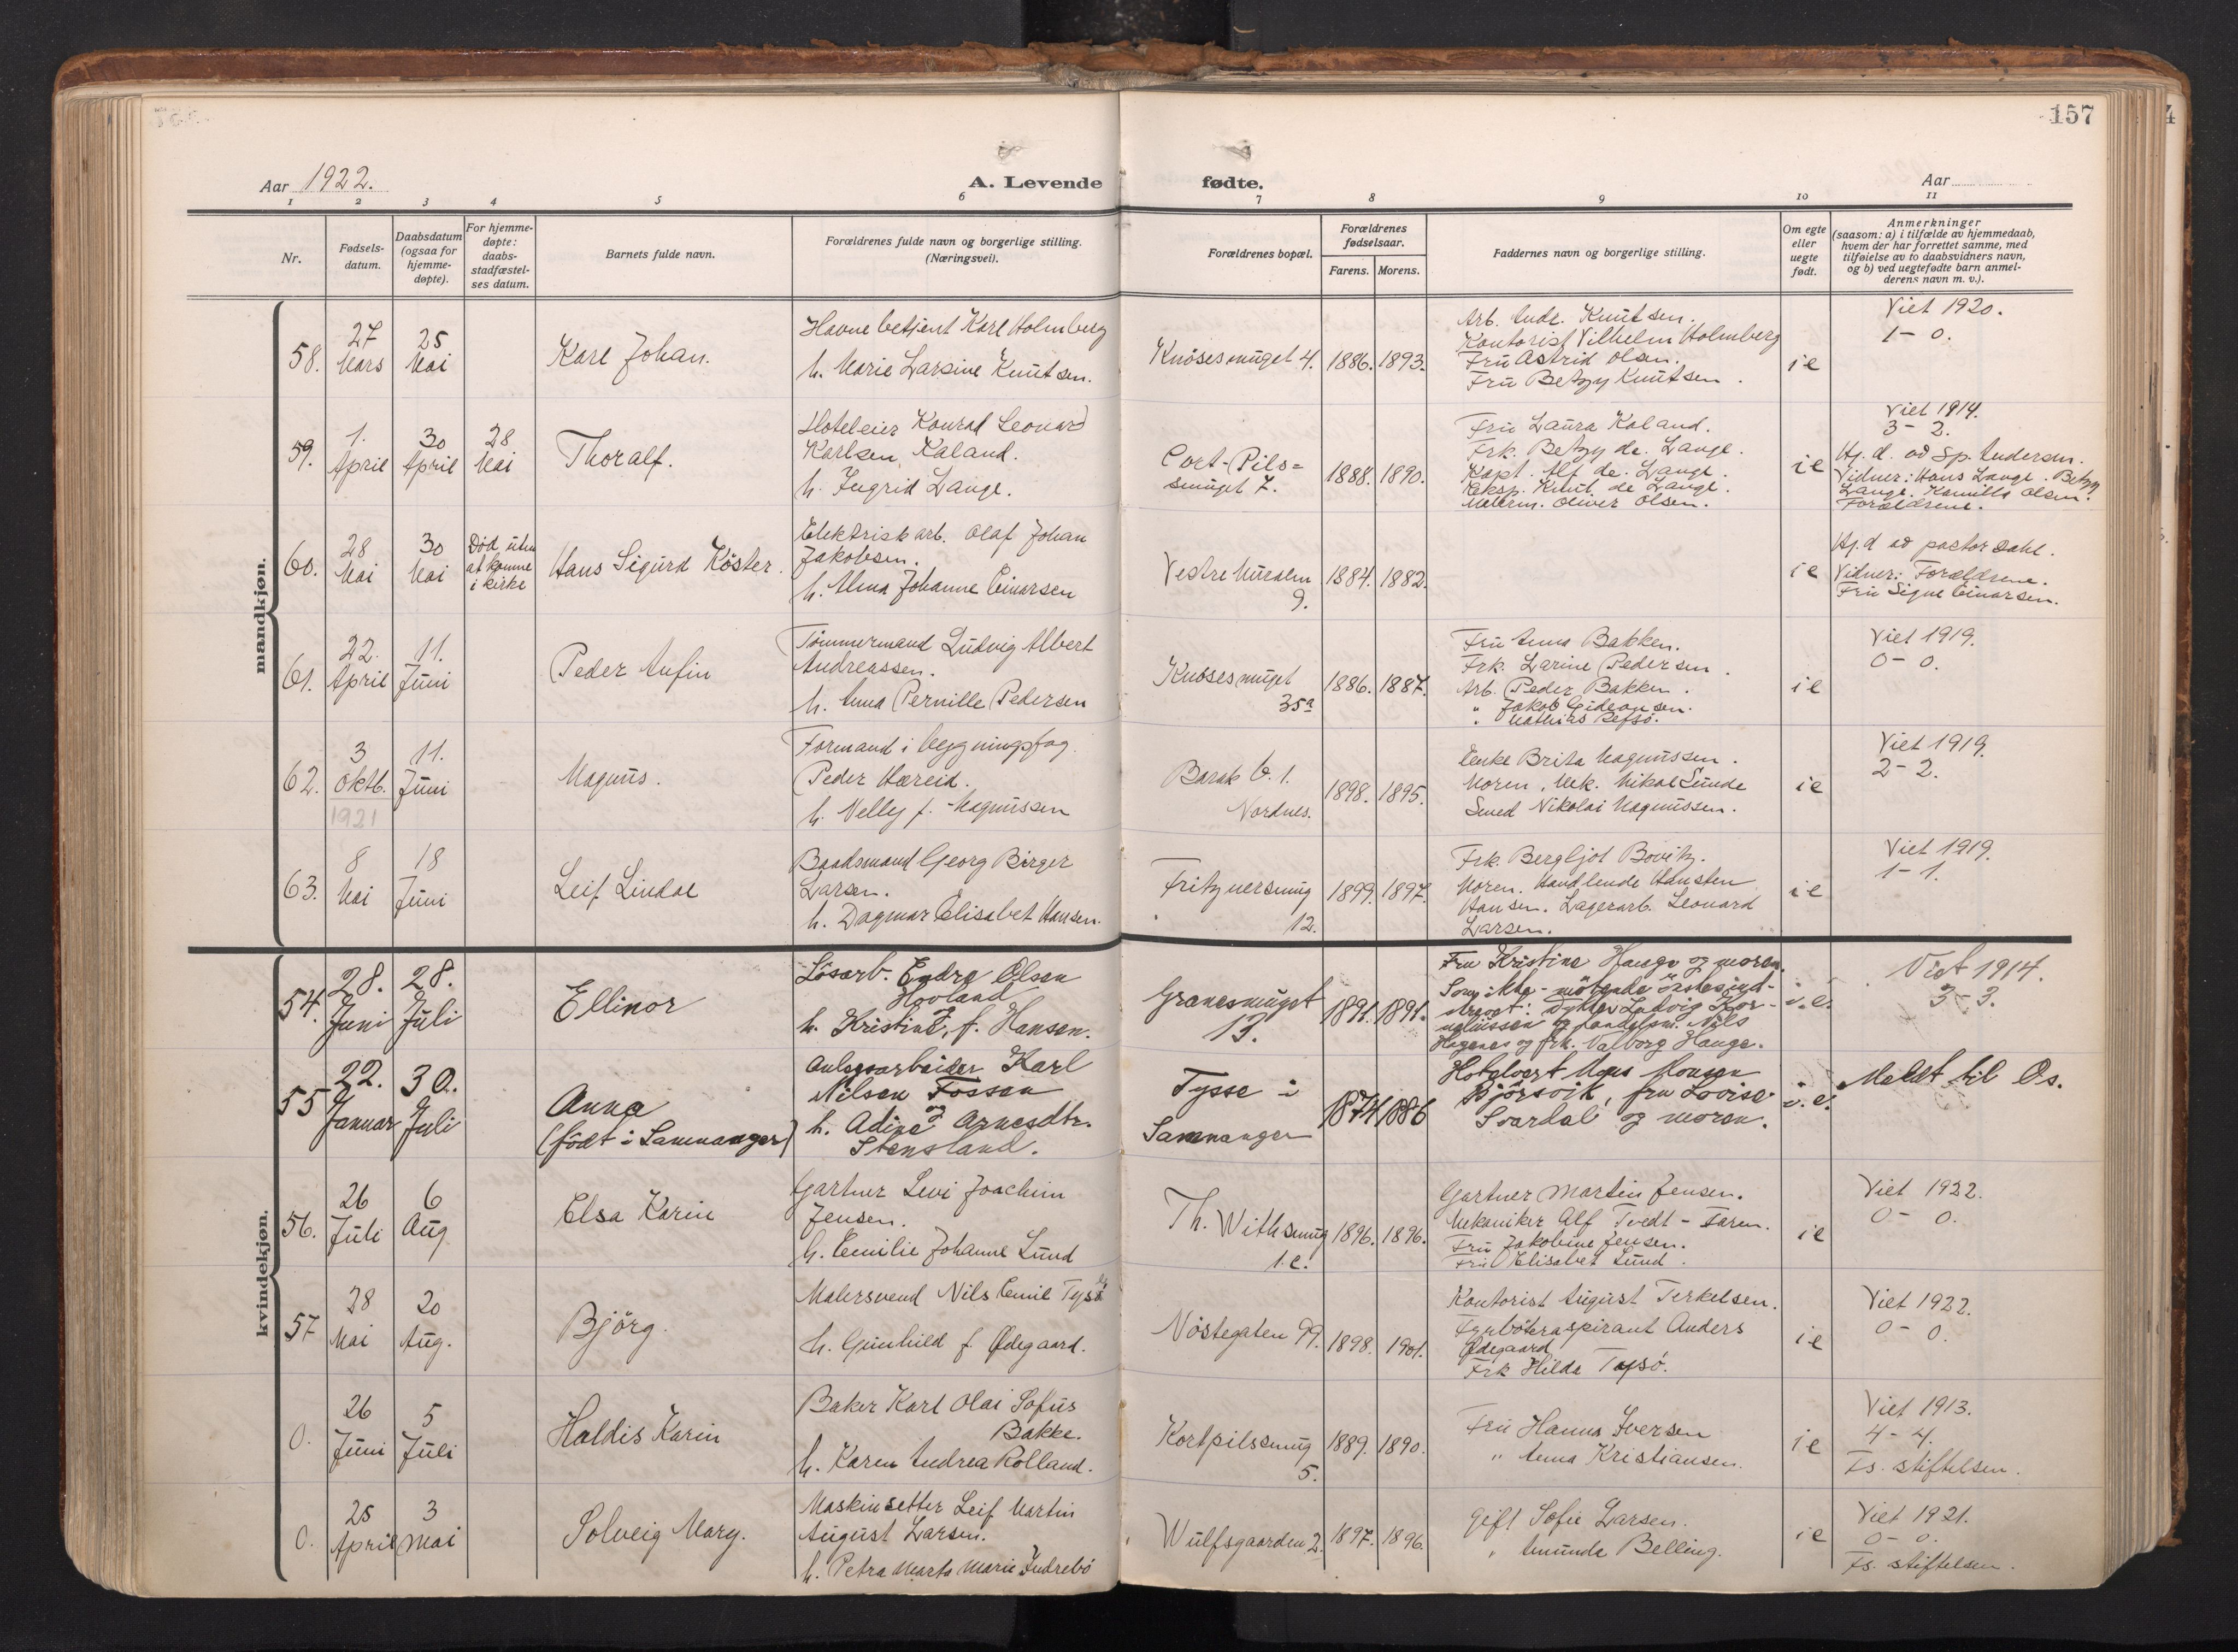 157
Aar 1922.
A. Levende fødte.
Aar
1 2 3 4 5 6 7 8 9 10 11
Nr.
Fødsels-
datum.
Daabsdatum
(ogsaa for
hjemme-
døpte).
For hjemme-
døpte:
daabs-
stadfæstel-
ses datum.
Barnets fulde navn.
Forældrenes fulde navn og borgerlige stilling.
(Næringsvei).
Forældrenes bopæl.
Forældrenes
fødselsaar.
Farens. Morens.
Faddernes navn og borgerlige stilling.
Om egte
eller
uegte
født.
Anmerkninger
(saasom: a) i tilfælde av hjemmedaab,
hvem der har forrettet samme, med
tilføielse av to daabsvidners navn,
og b) ved uegtefødte barn anmel-
derens navn m. v.).
mandkjøn.
58.
27
Mars
25
Mai
Karl Johan.
Havnebetjent Karl Holmberg
h. Marie Larsine Knutsen.
Knösesmuget 4.
1886. 1893.
Arb. Andr. Knutsen.
Kontorist Vilhelm Holmberg
Fru Astrid Olsen.
Fru Betzy Knutsen.
ie
Viet 1920.
1 - 0.
59.
1.
April
30
April
28
Mai
Thoralf.
Hoteleier Konrad Leonard
Karlsen Kaland.
h. Ingrid Lange.
Cort-Pils=
smuget 7.
1888. 1890.
Fru Laura Kaland.
Frk. Betzy de Lange.
Kapt. Alf de Lange.
Eksp. Knut de Lange.
Malerm. Oliver Olsen.
ie
Viet 1914.
3 - 2.
Hj. d. ad Sp. Andersen.
Vidner: Hans Lange. Betzy
Lange. Kamilla Olsen.
Forældrene.
60.
28
Mai
30
Mai
Död uten
at komme
i kirke
Hans Sigurd Köster.
Elektrisk arb. Olaf Johan
Jakobsen.
h. Alma Johanne Einarsen
Vestre Muralm
9.
1884. 1882.
ie
Hj. d ad pastor Dahl.
Vidner: Forældrene.
Fru Signe Einarsen.
61.
22.
April
11.
Juni
Peder Anfin
Tömmermand Ludvig Albert
Andreassen.
h. Anna Pernille Pedersen
Knösesmuget
35a
1886. 1887.
Fru Anna Bakken.
Frk. Larine Pedersen.
Arb. Peder Bakken.
" Jakob Gideonsen.
" Mathias Refsö.
ie
Viet 1919.
0 - 0.
62.
3
Oktb.
1921
11.
Juni
Magnus.
Formand i bygningsfag.
Peder Hæreid.
h. Nelly f. Magnussen
Barak b. 1.
Nordnes.
1898. 1895.
Enke Brita Magnussen.
Moren. Mek. Mikal Sunde
Smed Nikolai Magnussen.
ie
Viet 1919.
2 - 2.
63.
8
Mai
18
Juni
Leif Lindal
Baadsmand Georg Birger
Larsen.
h. Dagmar Elisabet Hansen.
Fritznersmug
12.
1899. 1897.
Frk. Bergljot Bovitz.
Moren. Handlende Hansten
Hansen. Lagerarb. Leonard
Larsen.
ie
Viet 1919.
1 - 1.
kvindekjøn.
54.
28.
Juni
28.
Juli
Ellinor
Lösarb. Endre Olsen
Hovland
h. Kristine, f. Hansen.
Granesmuget
13.
1891. 1891.
Fru Kristine Hauge og moren.
Som ikke-mötende önskes ind-
skrevet: Dykker Ludvig Kor-
neliussen og handelsm. Nils
Hagenes og frk. Valborg Hauge.
i.e.
Viet 1914.
3 - 3.
55
22.
Januar
30.
Juli
Anna
(födt i Samnanger)
Anlegsarbeider Karl
Nilsen Fossen
og
h. Adine Arnesdtr.
Stensland.
Tysse i
Samnanger
1874 1886
Hotelvert Mons Monsen
Björsvik, fru Lovise
Svardal og moren.
i.e.
Meldt til Os.
56.
26
Juli
6
Aug
Elsa Karin
Gartner Levi Joachim
Jensen.
h. Emilie Johanne Lund
Th. Withsmug
1 c.
1896. 1896.
Gartner Martin Jensen.
Mekaniker Alf Tvedt - Faren.
Fru Jakobine Jensen.
Fru Elisabet Lund.
ie
Viet 1922.
0 - 0.
57
28
Mai
20
Aug.
Björg.
Malersvend Nils Emil Tysö
h. Gunhild f. Ødegaard.
Nöstegaten 99.
1898. 1901.
Kontorist August Terkelsen.
Fyrböteraspirant Anders
Ødegaard
Frk Hilda Tysö.
ie
Viet 1922.
0 - 0.
0.
26
Juni
5
Juli
Haldis Karin
Baker Karl Olai Sofus
Bakke.
h. Karen Andrea Rolland.
Kortpilssmug
5.
1889. 1890.
Fru Hanna Iversen
" Anna Kristiansen.
ie
Viet 1913.
4 - 4.
Fs. stiftelsen.
0.
25
April
3
Mai
Solveig Mary.
Maskinsetter Leif Martin
August Larsen.
h. Petra Marta Marie Indrebö
Wulfsgaarden 2.
1897. 1896.
Gift Sofie Larsen.
" Amunda Belling.
ie
Viet 1921.
0 - 0.
Fs. stiftelsen.